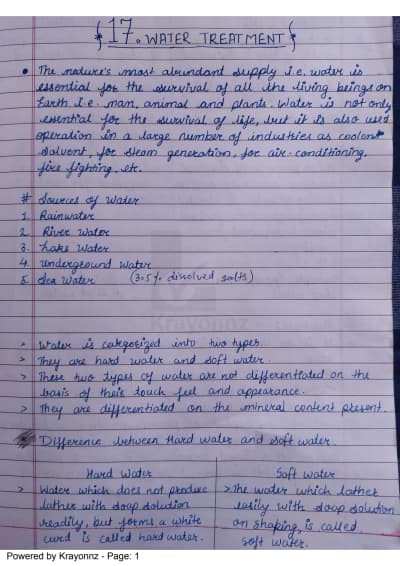 17. WATER TREATMENT
• The nature's most abundant supply i.e. water is
essential for the survival of all the living beings on
Earth i.e. man, animal and plants. Water is not only
essential for the survival of life, but it is also used
operation in a large number of industries as coolent
solvent, for steam generation, for air-conditioning,
fire fighting, etc.
# Sources of Water
1. Rainwater
2. River Water
3. Lake Water
4. Underground Water
5. Sea Water (3.5% dissolved salts)
Krayonnz
> Water is categorized into two types.
> They are hard water and soft water.
> These two types of water are not differentiated on the
basis of their touch feel and appearance.
> They are differentiated on the mineral content present.
Difference between Hard water and soft water.
Hard Water Soft water
> Water which does not produce > The water which lather
lather with soap solution easily with soap solution
readily, but forms a white on shaking, is called
curd is called hard water. soft water.
Powered by Krayonnz - Page: 1